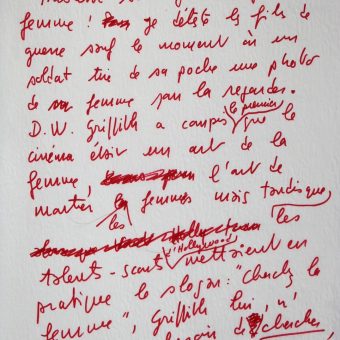 femme! je déteste les films de
guerre sauf le moment où un
soldat tire de sa poche une photo
de sa femme pour la regarder.
D.W. Griffith a compris le premier que le
cinéma était un art de la
femme, l'art de
montrer les femmes mais tandis que
les
talents-scouts d'Hollywood mettaient en
pratique le slogan: "Cherchez la
femme", Griffith lui, n'
besoin de chercher,